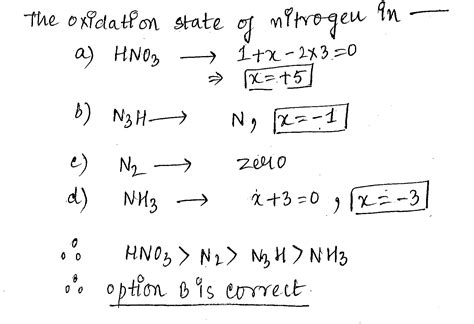 The oxidation state of nitrogen in —
a) HNO₃ → 1+x-2×3=0
⇒ x=+5
b) N₃H → N, x=-1
c) N₂ → zero
d) NH₃ → x+3=0, x=-3
∴ HNO₃ > N₂ > N₃H > NH₃
∴ option B is correct.